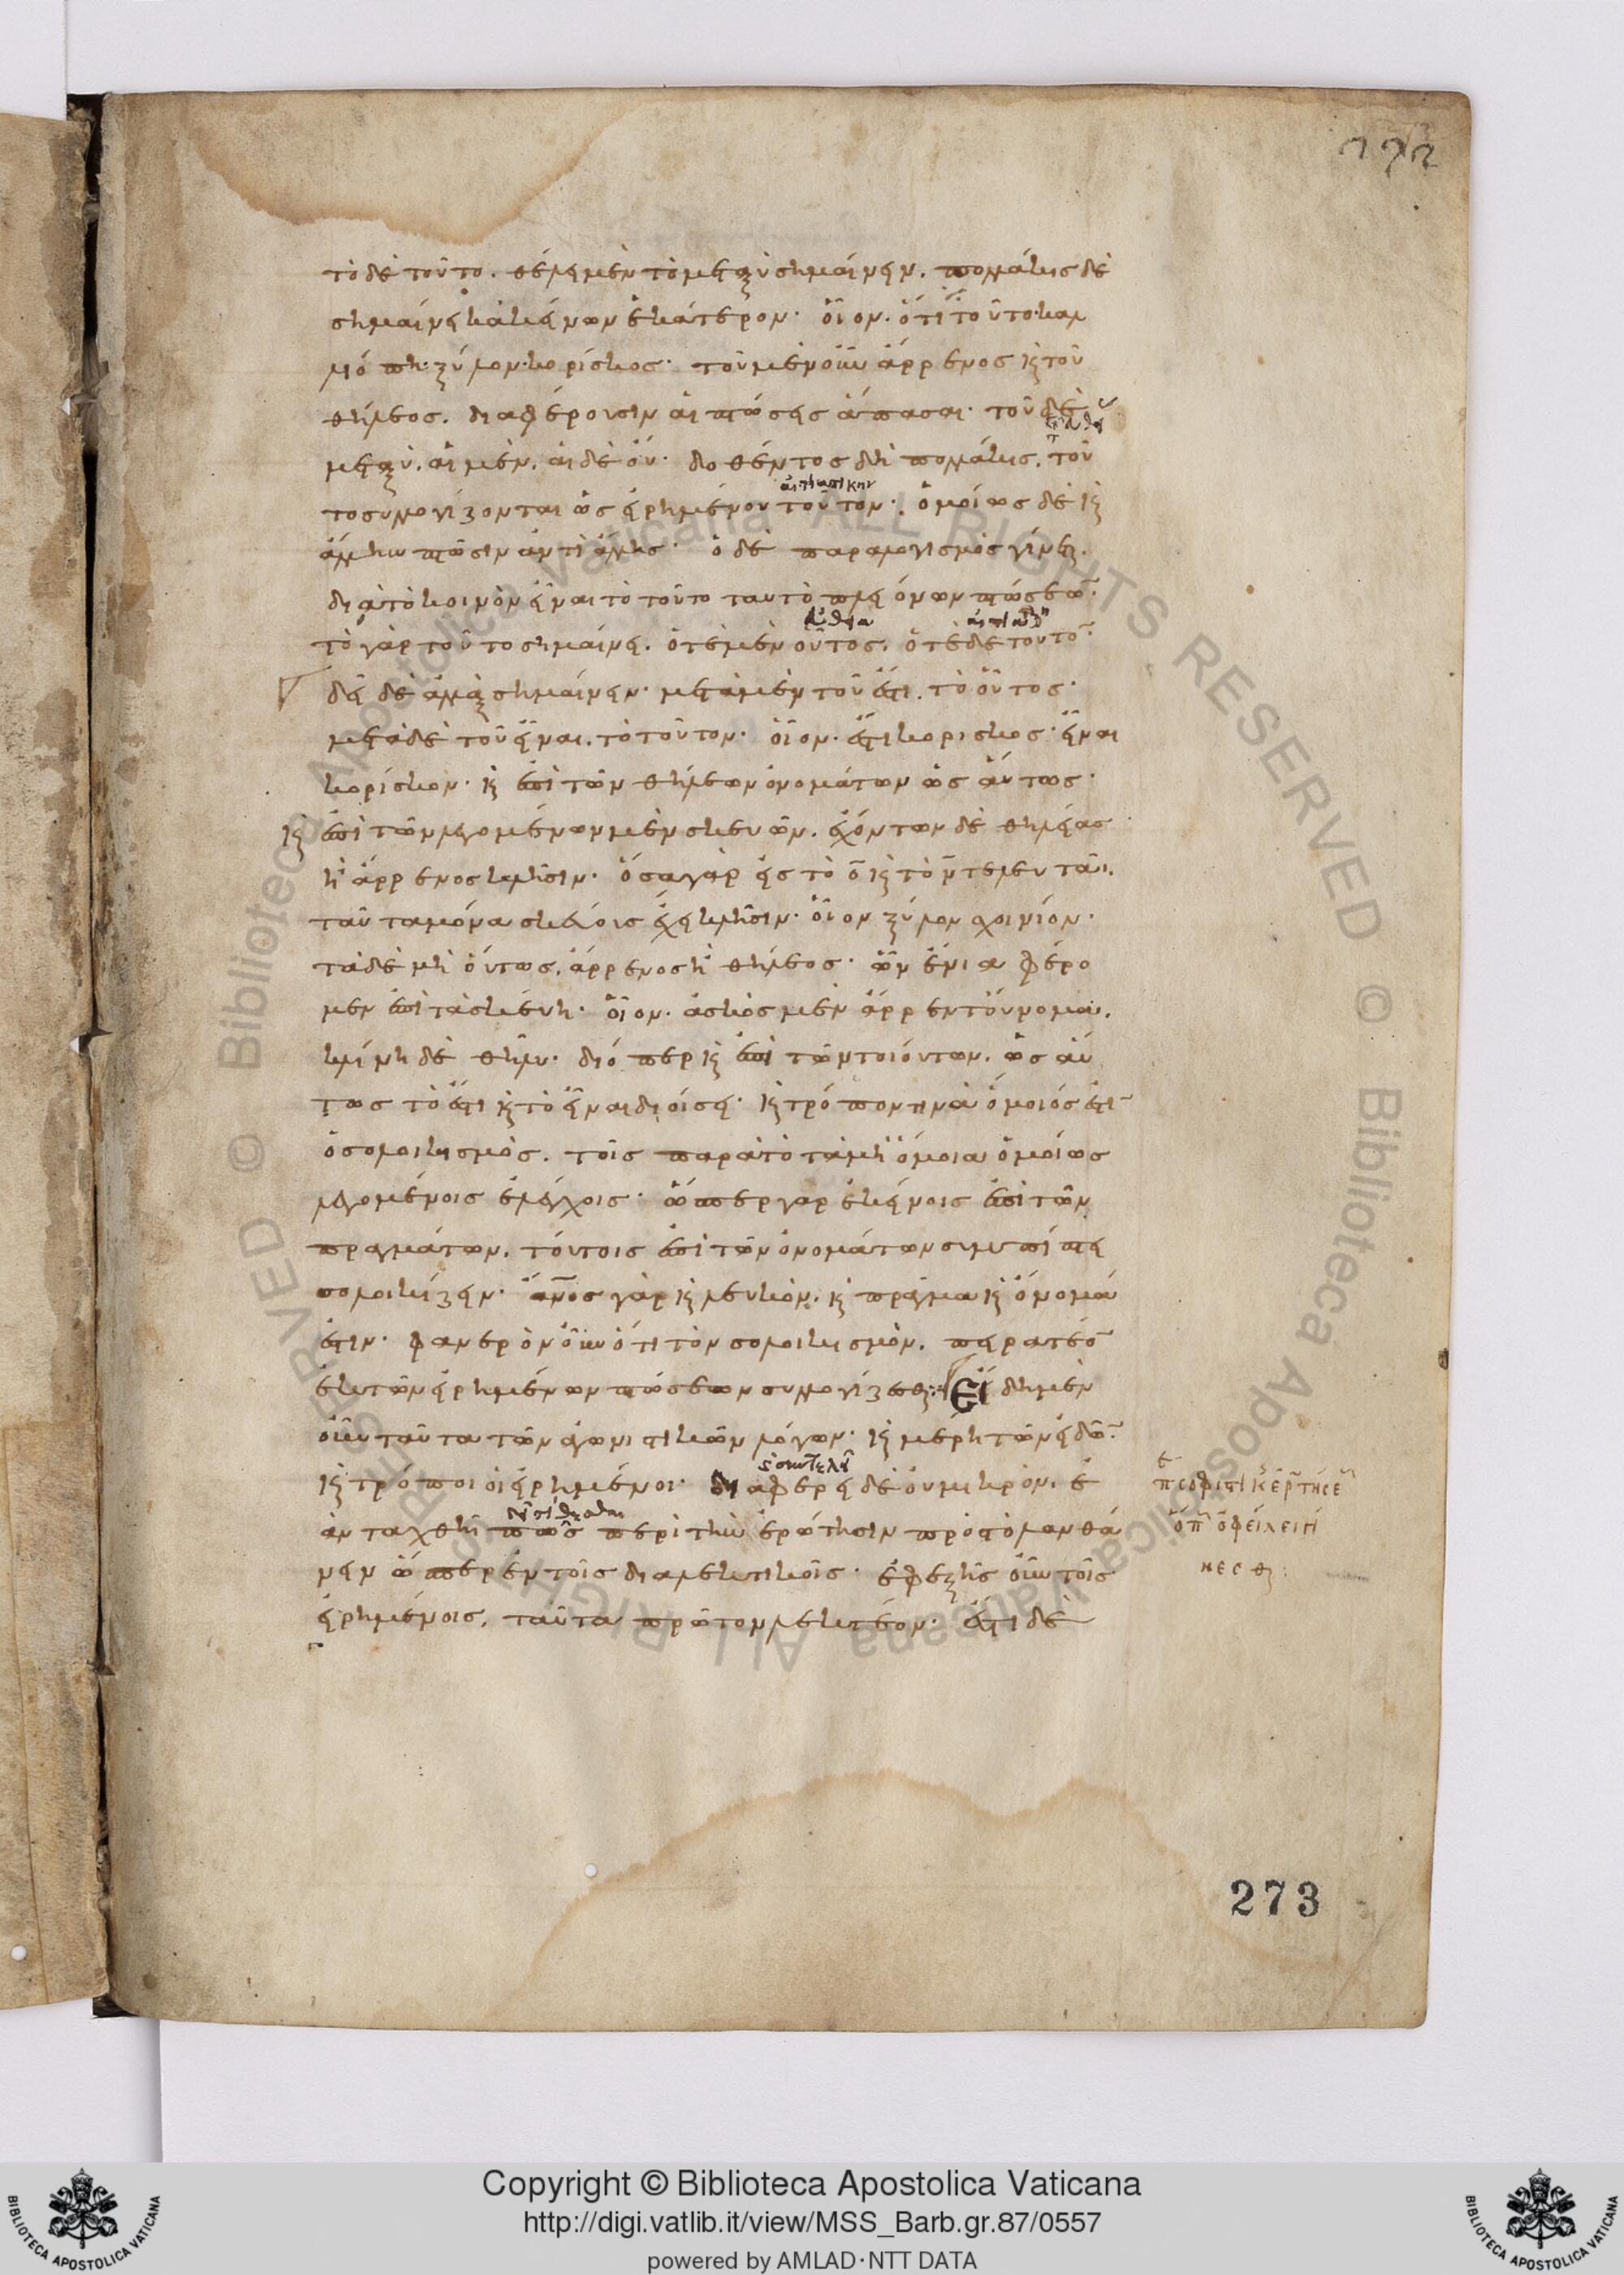 273
τὸ δὲ τοῦτο. θέλει μὲν τὸ μεταξὺ σημαίνειν. πολλάκις δὲ
σημαίνει κἀκείνων ἑκάτερον· οἷον. ὅτι τοῦτο· καλ
λιόπη· ξύλον· κορίσκος· τοῦ μὲν οὖν ἄρρενος κ τοῦ
θήλεος. διαφέρουσιν αἱ πτώσεις ἅπασαι· τοῦ δὲ
μεταξὺ. αἱ μὲν. αἱ δὲ οὔ· δοθέντος δὴ πολλάκις. τοῦ
το συλλογίζονται ὡς εἰρημένου τοῦτον· ὁμοίως δὲ κ
αἰτιατικην
ἄλλην πτῶσιν ἀντὶ ἄλλης· ὁ δὲ παραλογισμὸς γίνεται.
διὰ τὸ κοινὸν εἶναι τὸ τοῦτο ταυτὸ πλειόνων πτώσεων·
τὸ γὰρ τοῦτο σημαίνει. ὁτὲ μὲν οὗτος. ὁτὲ δὲ τοῦτον·
δεῖ δὲ ἀλλὰξ σημαίνειν· μετὰ μὲν τοῦ ἔστι. τὸ οὗτος·
μετὰ δὲ τοῦ εἶναι. τὸ τοῦτον· οἷον· ἔστι κορισκος· εἶναι
κορίσκον· κ ἐπὶ τῶν θήλεων ὀνομάτων ὡς αὔτως·
κ ἐπὶ τῶν λεγομένων μὲν σκευῶν. ἐχόντων δὲ θηλείας
ἢ ἄρρενος κλῆσιν· ὅσα γὰρ εἰς τὸ ο κ τὸ ν τελευτᾶι.
ταῦτα μόνα σκεύους ἔχει κλῆσιν· οἷον ξύλον σχοινίον·
τὰ δὲ μὴ οὕτως. ἄρρενος ἢ θήλεος· ὧν ἔνια φέρο
μεν ἐπὶ τὰ σκεύη· οἷον. ἀσκὸς μὲν ἄρρεν τοὔνομα.
κλίνη δὲ θῆλυ· διό περ κ ἐπὶ τῶν τοιούτων. ὡς αὔ
τως τὸ ἔστι κ τὸ εἶναι διοίσει· κ τρόπον τινὰ ὅμοιός ἐστιν
ὁ σολοικισμὸς. τοῖς παρὰ τὸ τὰ μὴ ὅμοια ὁμοίως
λεγομένοις ἐλέγχοις· ὥσπερ γαρ ἐκείνοις ἐπὶ τῶν
πραγμάτων. τούτοις ἐπὶ τῶν ὀνομάτων συμπίπτει
σολοικίζειν· ἄνος γὰρ κ λευκὸν. κ πρᾶγμα κ ὄνομά
ἐστιν· φανερὸν οὖν ὅτι τὸν σολοικισμὸν. πειρατέον
ἐκ τῶν εἰρημένων πτώσεων συλλογίζεσθαι: Εἴδη μὲν
οὖν ταῦτα τῶν ἀγωνιστικῶν λόγων· κ μέρη τῶν εἰδῶν·
κ τρόποι οἱ εἰρημένοι· διαφέρει δὲ οὐ μικρὸν. ἐ
ὰν ταχθῆ πως περὶ τὴν ἐρώτησιν πρὸς τὸ λανθά
νειν ὥσπερ ἐν τοῖς διαλεκτικοῖς· ἐφεξῆς οὖν τοῖς
εἰρημένοις. ταῦτα πρῶτον λεκτέον· ἔστι δὲ
273
Copyright © Biblioteca Apostolica Vaticana
http://digi.vatlib.it/view/MSS_Barb.gr.87/0557
powered by AMLAD·NTT DATA
BIBLIOTECA APOSTOLICA VATICANA
BIBLIOTECA APOSTOLICA VATICANA